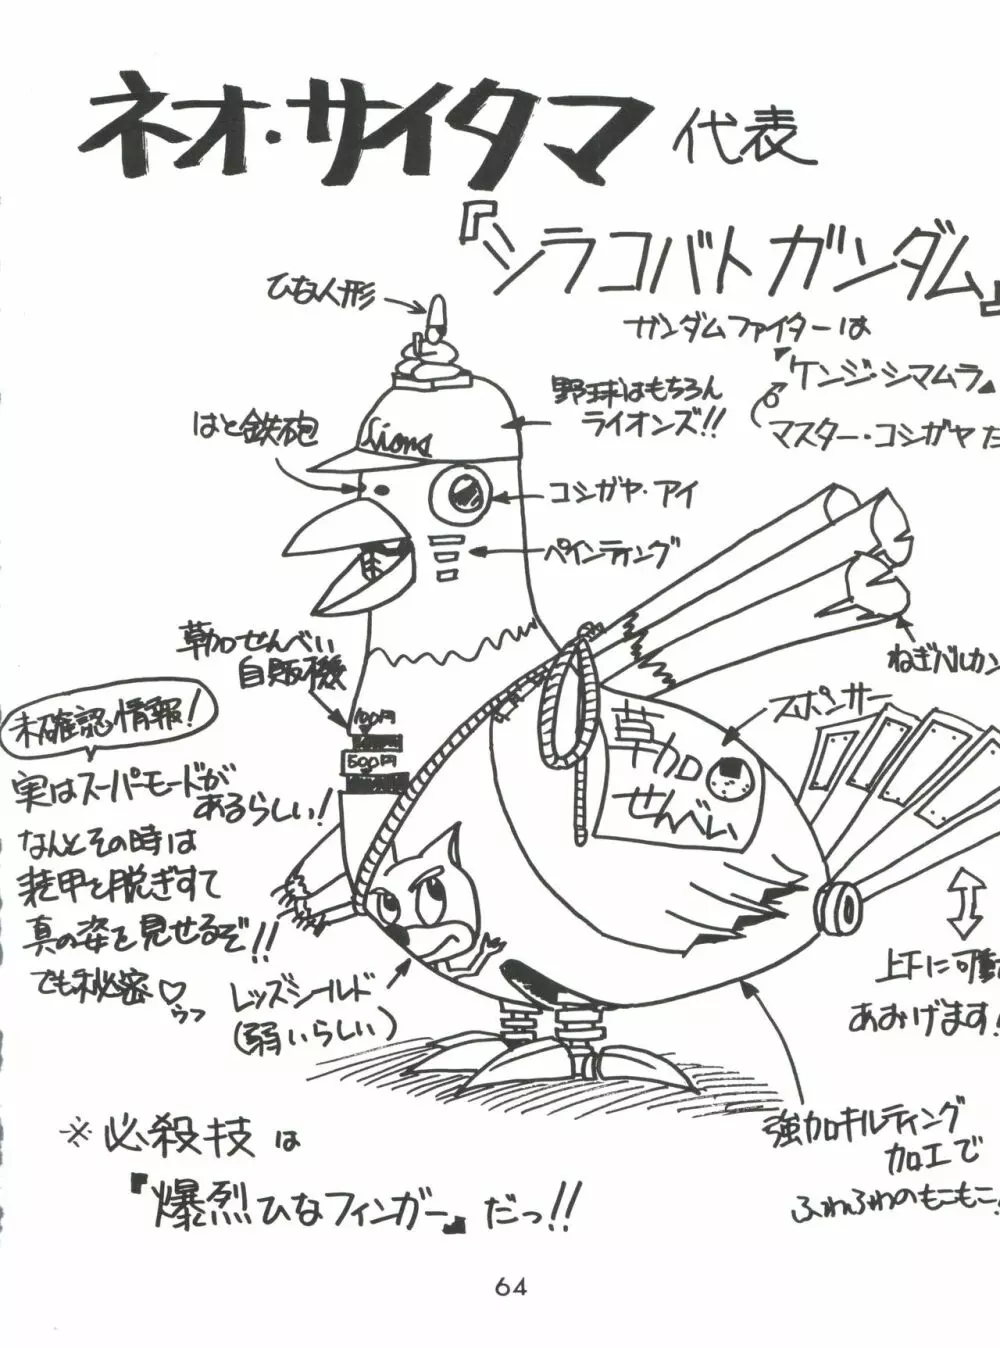 ネオ・サイタマ 代表
『シラコバトガンダム』
ガンダムファイターは
『ケンジ・シマムラ』
マスター・コシガヤだ
ひな人形
野球はもちろん
ライオンズ!!
はと鉄砲
Lions
コシガヤ・アイ
ペインティング
草加せんべい
自販機
100円
500円
ねぎバルカン
スポンサー
草加
せんべい
未確認情報!
実はスーパーモードが
あるらしい!
なんとその時は
装甲を脱ぎすて
真の姿を見せるぞ!!
でも秘密♡
ウフ
レッズシールド
(弱いらしい)
上下に可動
あおげます!
強加キルティング
加工で
ふわふわのもこもこ!
※必殺技は
『爆烈ひなフィンガー』だっ!!
64